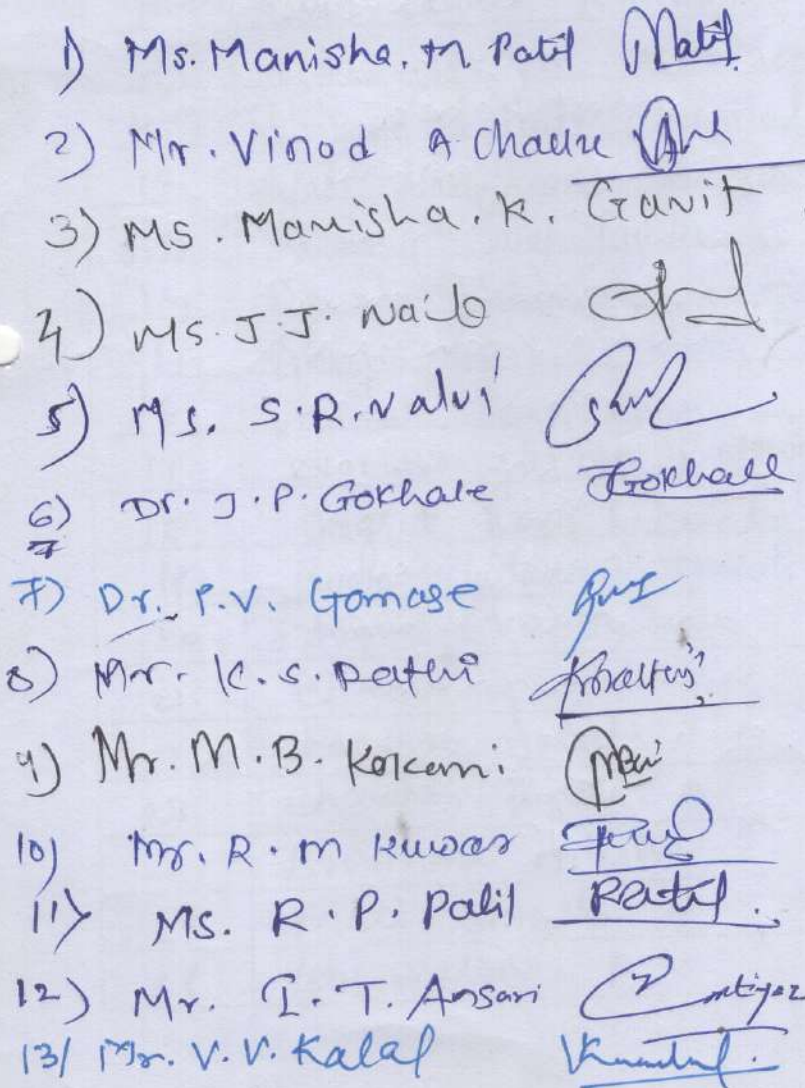 1) Ms. Manisha. M. Patil Patil
2) Mr. Vinod A Chaure
3) Ms. Manisha. K. Gavit
4) Ms. J. J. Naik
5) Ms. S. R. Valvi
6) Dr. J. P. Gokhale JGokhale
7
7) Dr. P. V. Gomase
8) Mr. K. S. Rathi
9) Mr. M. B. Kokani
10) Mr. R. M Kuwar
11) Ms. R. P. Patil RPatil.
12) Mr. I. T. Ansari Imtiyaz
13/ Mr. V. V. Kalal